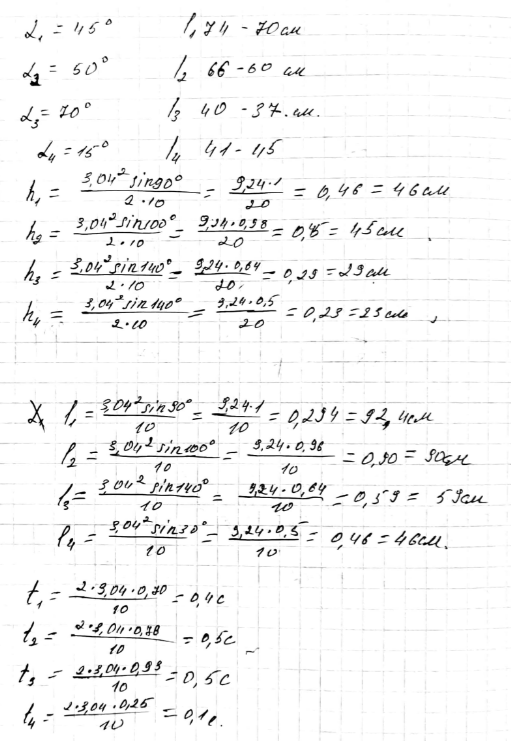 α₁ = 45° l₁ 74 - 70 см
α₂ = 50° l₂ 66 - 60 см
α₃ = 70° l₃ 40 - 37. см.
α₄ = 15° l₄ 41 - 45
h₁ = 3,04² sin90° / 2·10 = 9,24·1 / 20 = 0,46 = 46 см
h₂ = 3,04² sin100° / 2·10 = 9,24·0,98 / 20 = 0,45 = 45 см
h₃ = 3,04² sin140° / 2·10 = 9,24·0,64 / 20 = 0,29 = 29 см
h₄ = 3,04² sin140° / 2·10 = 9,24·0,5 / 20 = 0,23 = 23 см
l₁ = 3,04² sin90° / 10 = 9,24·1 / 10 = 0,294 = 92,4 см
l₂ = 3,04² sin100° / 10 = 9,24·0,98 / 10 = 0,90 = 90 см
l₃ = 3,04² sin140° / 10 = 9,24·0,64 / 10 = 0,59 = 59 см
l₄ = 3,04² sin30° / 10 = 9,24·0,5 / 10 = 0,46 = 46 см.
t₁ = 2·3,04·0,70 / 10 = 0,4 с
t₂ = 2·3,04·0,78 / 10 = 0,5 с
t₃ = 2·3,04·0,93 / 10 = 0,5 с
t₄ = 2·3,04·0,25 / 10 = 0,1 с.